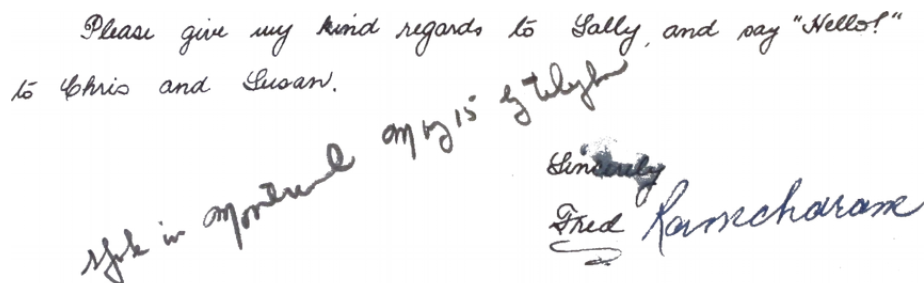 Please give my kind regards to Sally, and say "Hello!"
to Chris and Susan.
in Montreal May 15 by
Sincerely
Fred Ramcharam